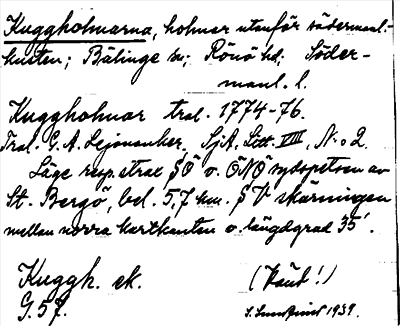 Kuggholmarna, holmar utanför södermanl.-
kusten; Bälinge sn; Rönö hd; Söder-
manl. l.
Kuggholmar tral. 1774-76.
Tral. G. A. Lejonanker, SjA, Litt. VIII, N:o 2.
Läge resp. strax SÖ o. ÖNÖ sydspetsen av
St. Bergö, bel. 5,7 km. SV skärningen
mellan norra kartkanten o. längdgrad 35'.
Kuggh. ek.
(Känt!)
G. 57.
1939.